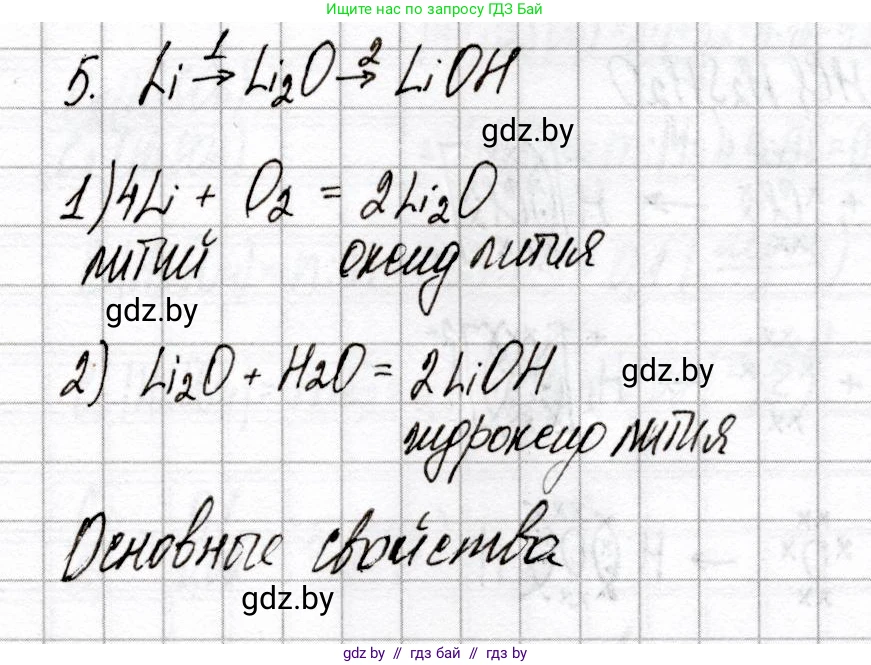 Ищите нас по запросу ГДЗ Бай
5. Li →¹ Li₂O →² LiOH
gdz.by
1) 4Li + O₂ = 2Li₂O
литий оксид лития
gdz.by
2) Li₂O + H₂O = 2LiOH
gdz.by
гидроксид лития
Основные свойства
gdz.by
gdz.by // гдз бай // gdz by